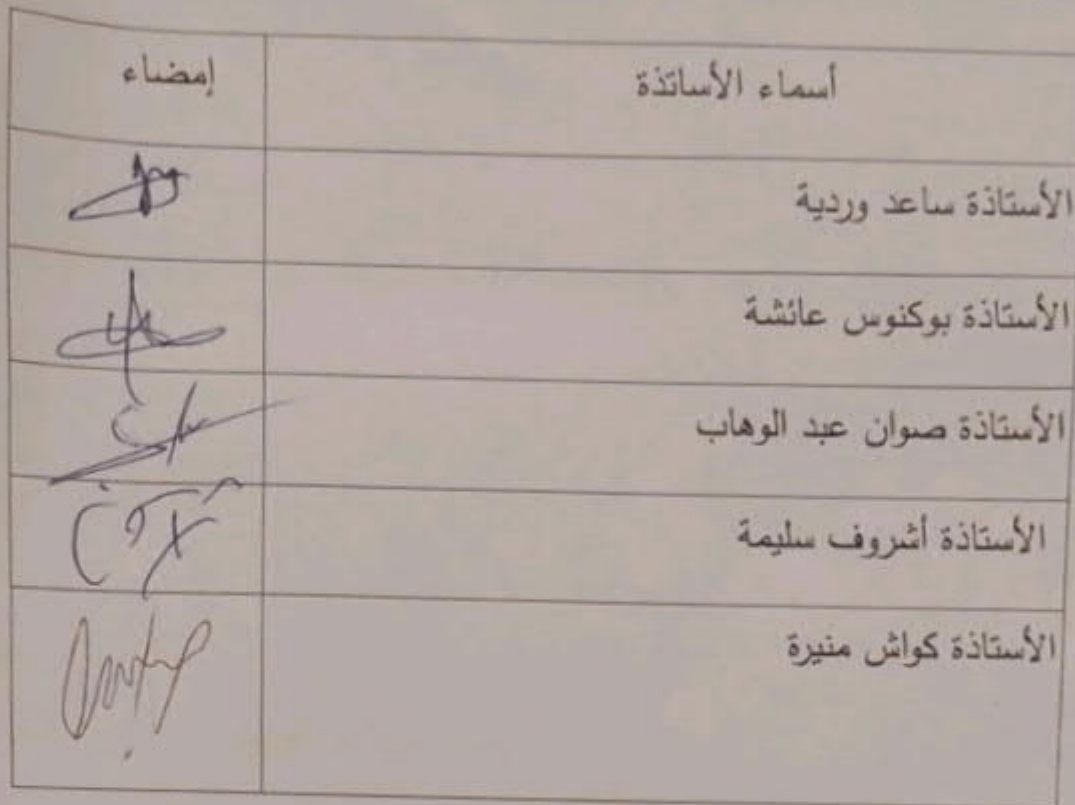 أسماء الأساتذة إمضاء
الأستاذة ساعد وردية
الأستاذة بوكنوس عائشة
الأستاذة صوان عبد الوهاب
الأستاذة أشروف سليمة
الأستاذة كواش منيرة